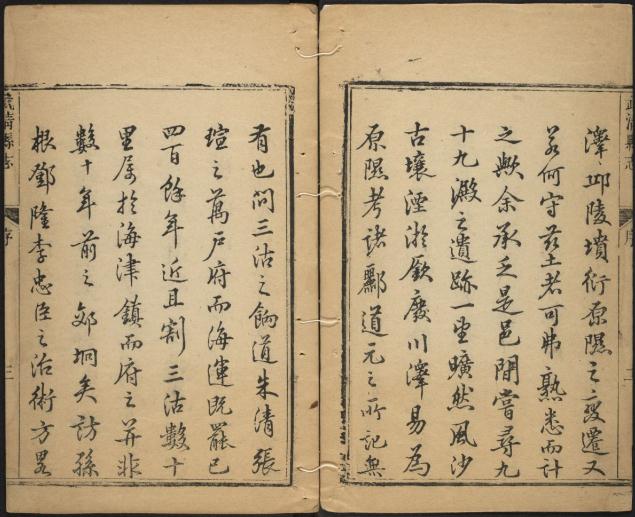 武清縣志
序
二
澤、邱陵墳衍原隰之變遷又
若何守茲土者可弗熟悉而計
之歟余承乏是邑閒嘗尋九
十九澱之遺跡一望曠然風沙
古壤湮淤厥廢川澤易為
原隰考諸酈道元之所記無
有也問三沽之餉道朱清張
瑄之萬戶府而海運既罷已
四百餘年近且割三沽數十
里屬於海津鎮而府之并非
數十年前之郊坰矣訪孫
根鄧隆李忠臣之治術方畧
武清縣志
序
三